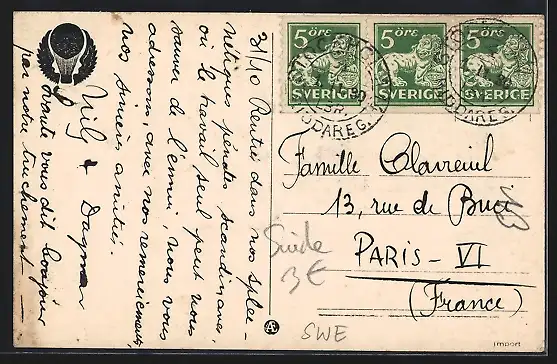 31/10 Rentré dans nos splee-
nétiques pénates scandinaves,
où le travail seul peut nous
sauver de l'ennui, nous vous
adressons avec nos remerciements,
nos sincères amitiés.
& Dagmar
vous dit bonjour
par notre truchement
5 ÖRE 5 ÖRE 5 ÖRE
SVERIGE SVERIGE SVERIGE
Famille Clavreuil
13, rue de Buci
PARIS - VI
(France)
Suède
3€
SWE
import